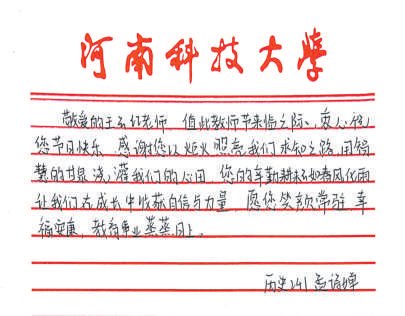 河南科技大学
敬爱的王云红老师 值此教师节来临之际，衷心祝
您节日快乐 感谢您以炬火照亮我们求知之路 用智
慧的书泉浇灌我们的心田 您的辛勤耕耘如春风化雨
让我们在成长中收获自信与力量 愿您笑颜常驻 幸
福安康，教育事业蒸蒸日上。
历史241 语婵